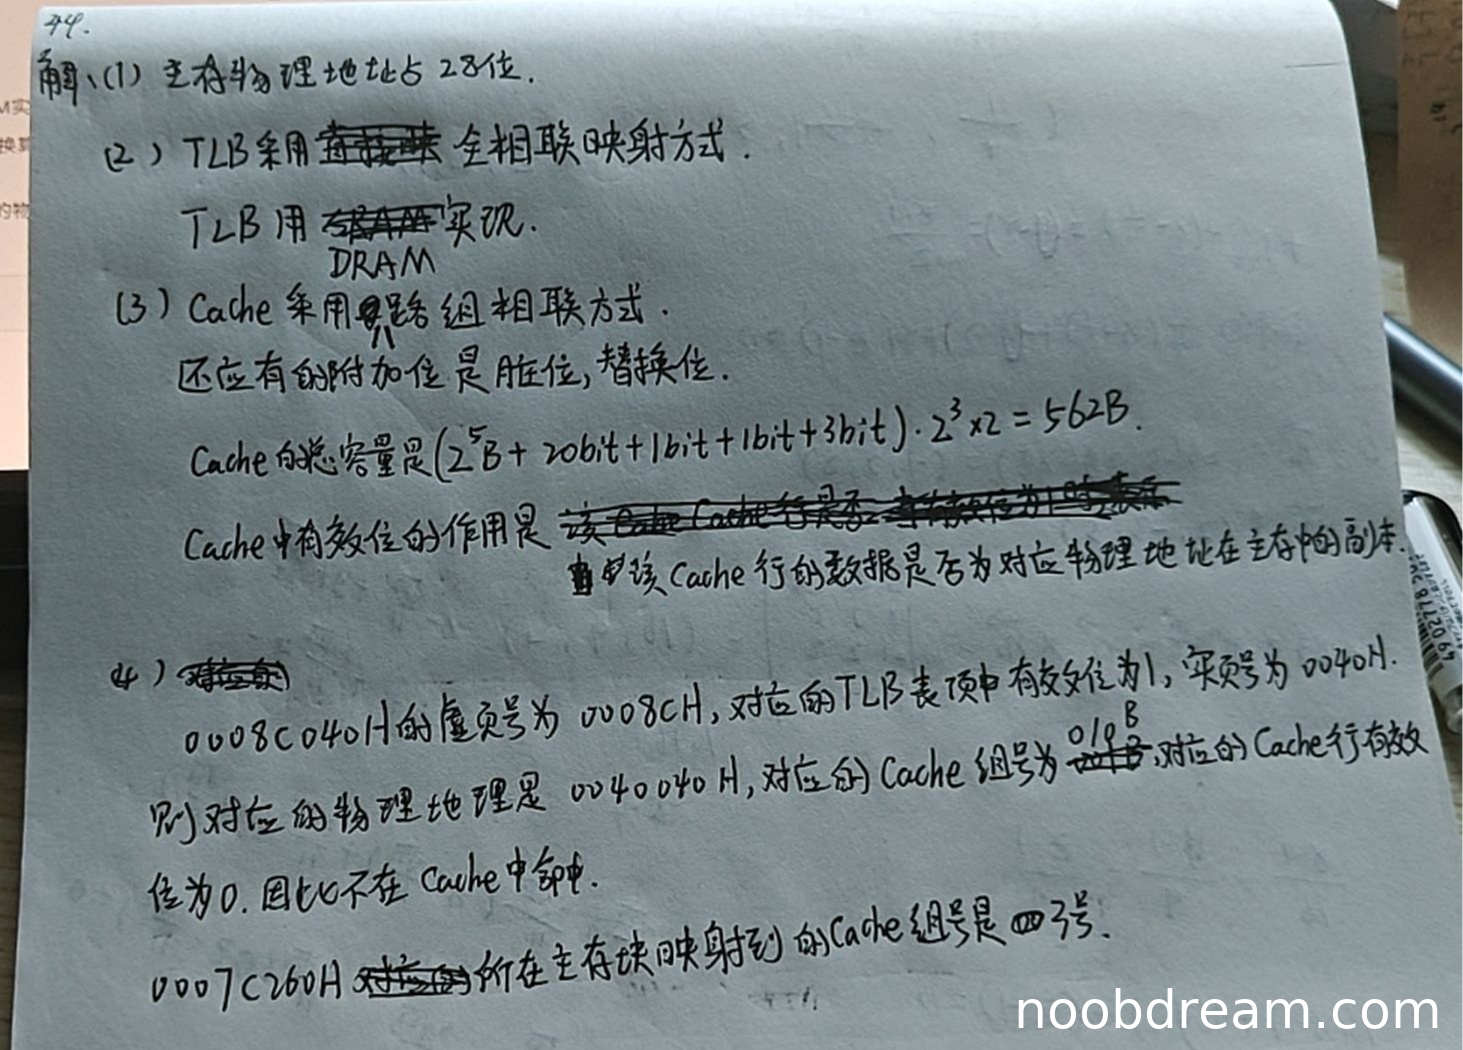 44.
解:(1) 主存物理地址占 28位.
(2) TLB采用 全相联映射方式.
TLB用 实现.
DRAM
(3) Cache 采用 八路 组相联方式.
还应有的附加位是脏位, 替换位.
Cache的总容量是(2⁵B + 20bit+1bit+1bit+3bit)·2³×2 = 562B.
Cache中有效位的作用是
该Cache行的数据是否为对应物理地址在主存中的副本.
(4)
0008C040H的虚页号为 0008CH, 对应的TLB表项中有效位为1, 实页号为 0040H.
则对应的物理地理是 0040040H, 对应的Cache组号为 010B, 对应的Cache行有效
位为0. 因此不在 Cache中命中.
0007C260H 所在主存块映射到的Cache组号是 3号.
M实
换算
的物
noobdream.com